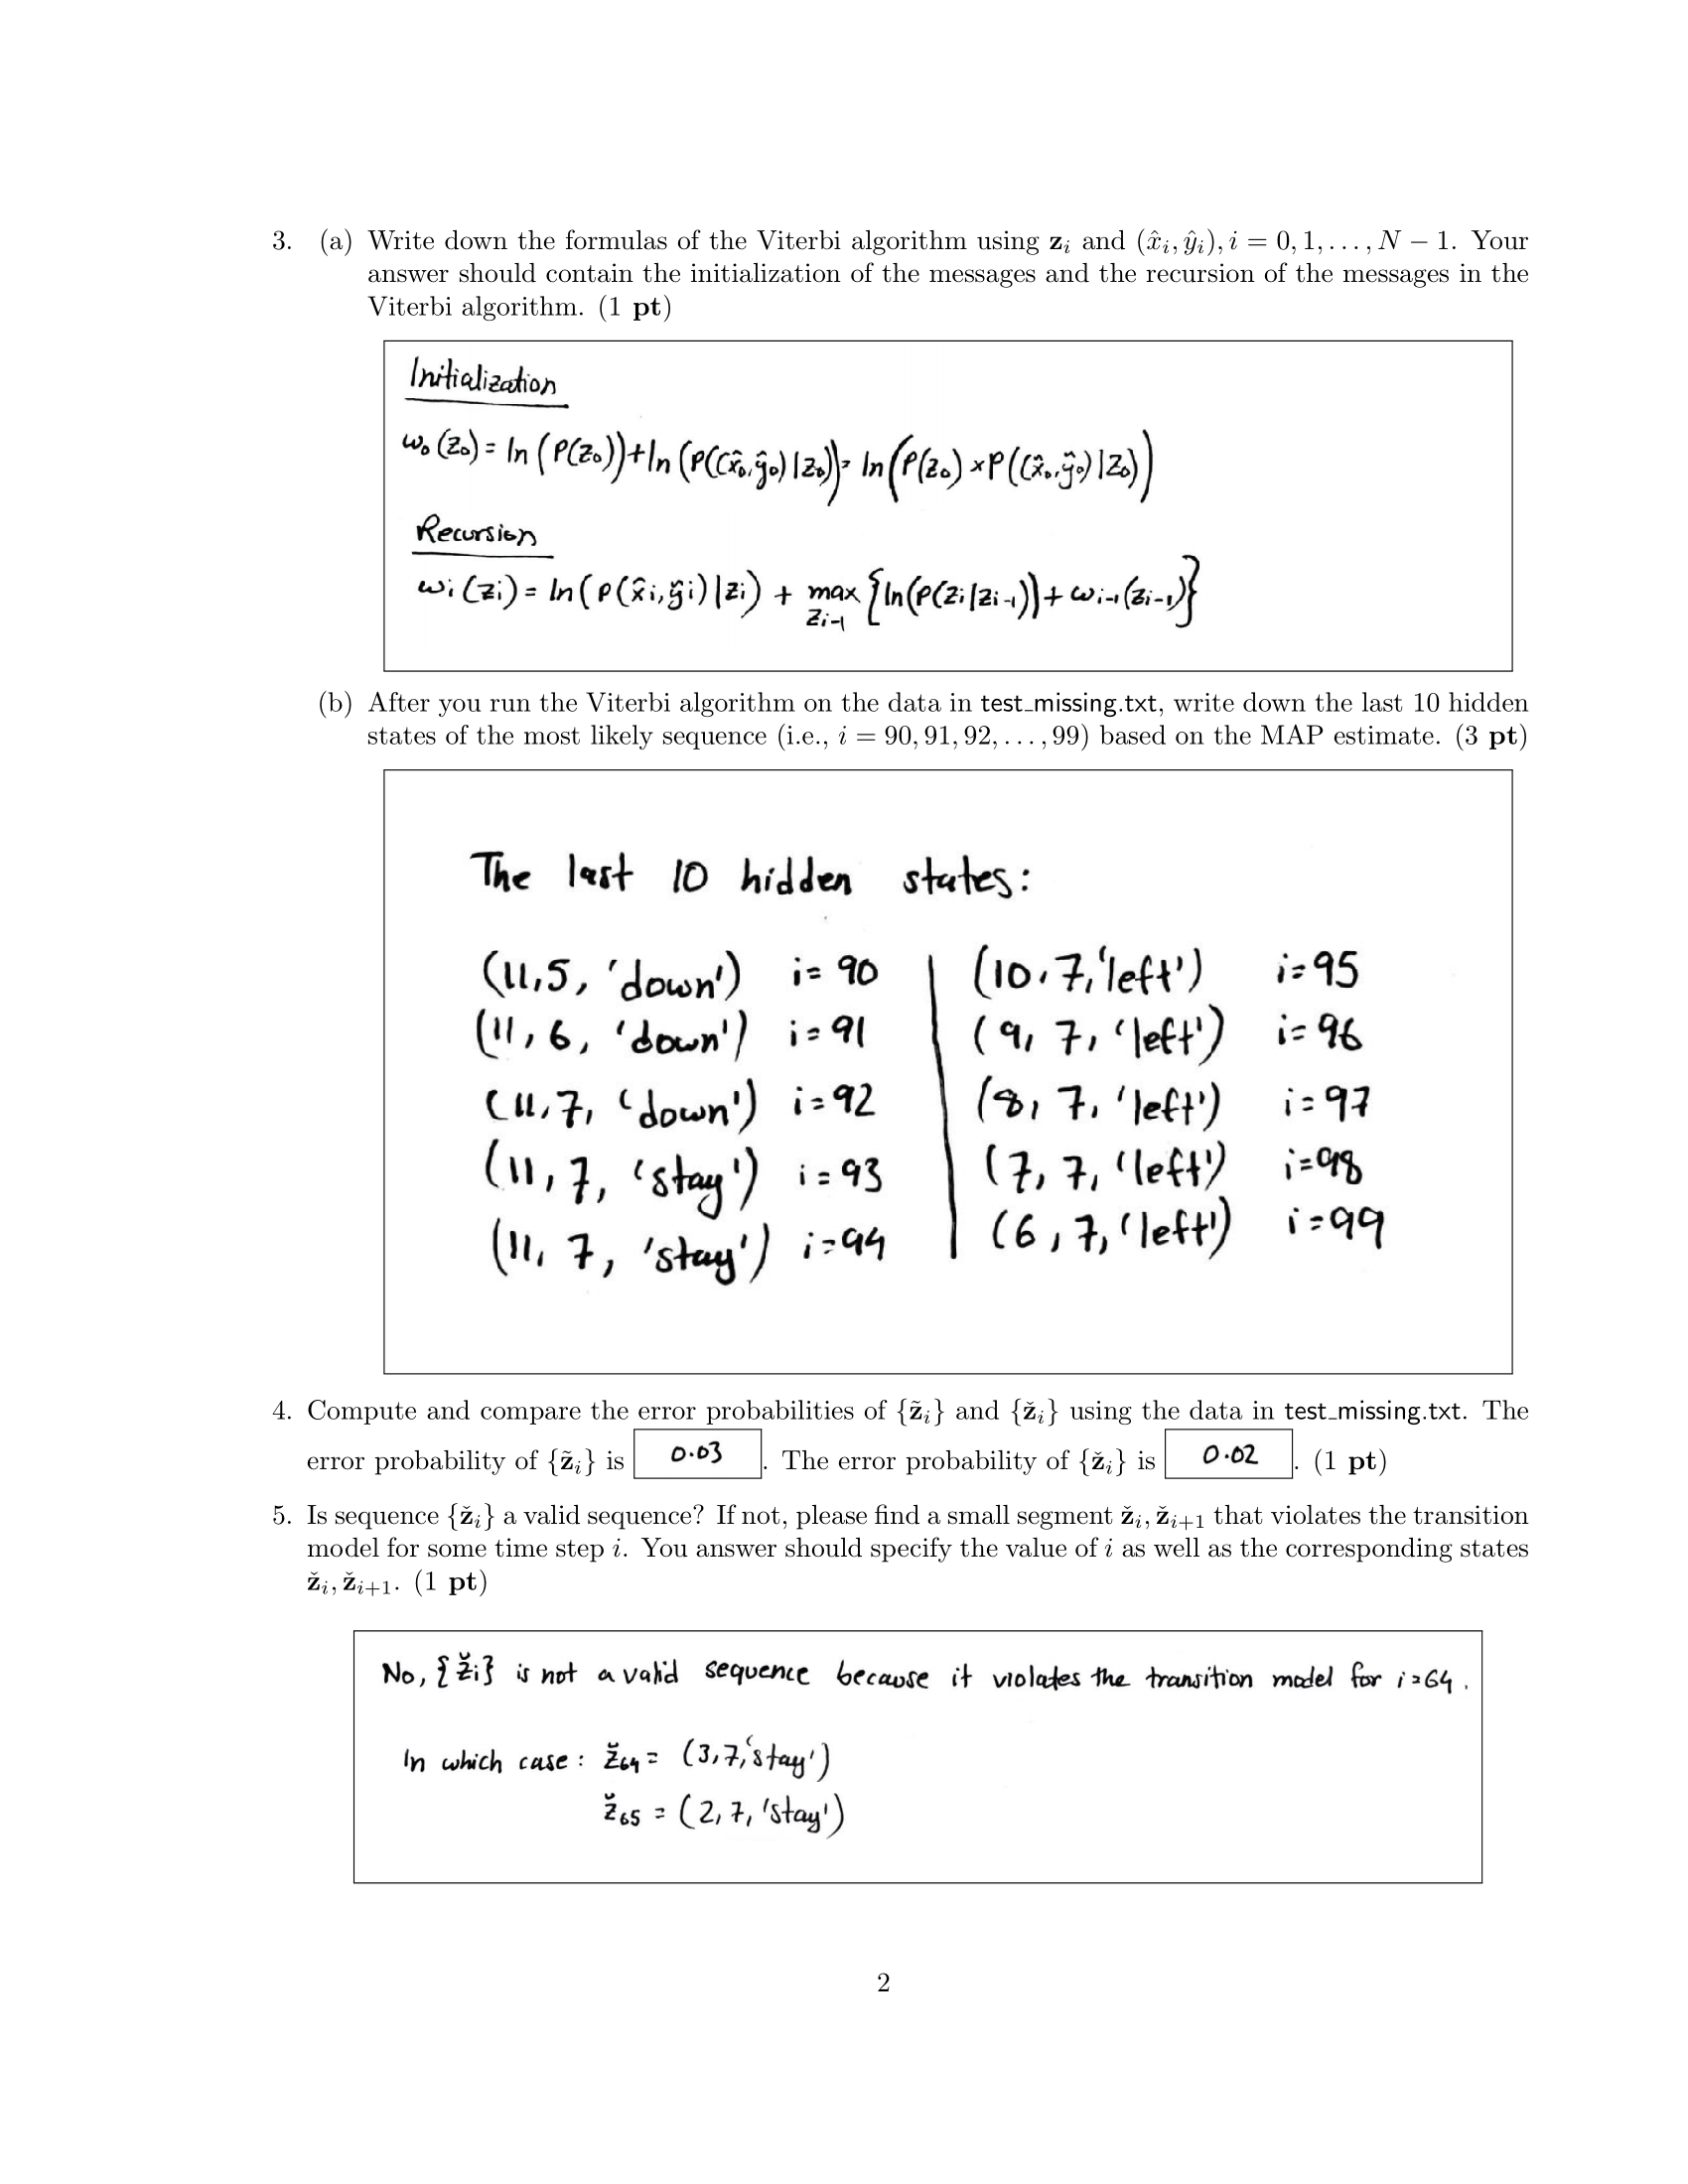 3. (a) Write down the formulas of the Viterbi algorithm using 𝐳ᵢ and (x̂ᵢ, ŷᵢ), i = 0, 1, . . . , N − 1. Your
answer should contain the initialization of the messages and the recursion of the messages in the
Viterbi algorithm. (1 pt)
Initialization
ω₀(z₀) = ln(P(z₀))+ln(P((x̂₀,ŷ₀)|z₀)) = ln(P(z₀)×P((x̂₀,ŷ₀)|z₀))
Recursion
ωᵢ(zᵢ) = ln(P(x̂ᵢ,ŷᵢ)|zᵢ) + max_{zᵢ₋₁} {ln(P(zᵢ|zᵢ₋₁))+ωᵢ₋₁(zᵢ₋₁)}
(b) After you run the Viterbi algorithm on the data in test_missing.txt, write down the last 10 hidden
states of the most likely sequence (i.e., i = 90, 91, 92, . . . , 99) based on the MAP estimate. (3 pt)
The last 10 hidden states:
(11,5, 'down') i= 90 (10,7,'left') i=95
(11, 6, 'down') i=91 (9, 7, 'left') i=96
(11,7, 'down') i=92 (8, 7, 'left') i=97
(11, 7, 'stay') i=93 (7, 7, 'left') i=98
(11, 7, 'stay') i=94 (6, 7, 'left') i=99
4. Compute and compare the error probabilities of {z̃ᵢ} and {žᵢ} using the data in test_missing.txt. The
error probability of {z̃ᵢ} is 0.03 . The error probability of {žᵢ} is 0.02 . (1 pt)
5. Is sequence {žᵢ} a valid sequence? If not, please find a small segment žᵢ, žᵢ₊₁ that violates the transition
model for some time step i. You answer should specify the value of i as well as the corresponding states
žᵢ, žᵢ₊₁. (1 pt)
No, {žᵢ} is not a valid sequence because it violates the transition model for i=64.
In which case: ž₆₄= (3,7,'stay')
ž₆₅ = (2, 7, 'stay')
2